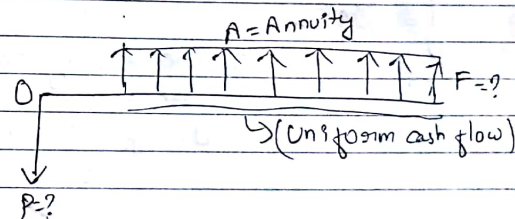 A = Annuity
O
F=?
(Uniform cash flow)
P=?